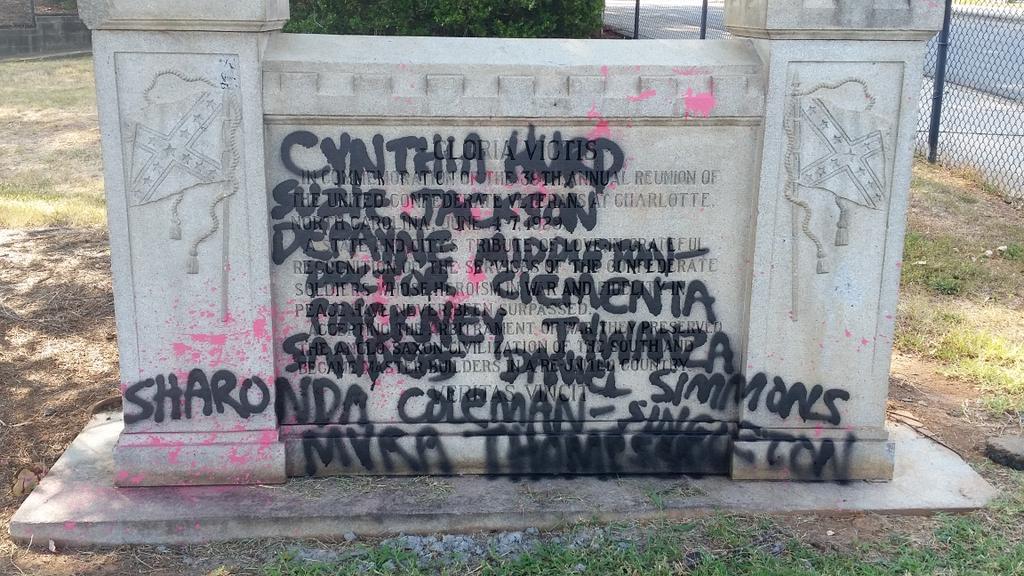 GLORIA VICTIS
IN COMMEMORATION OF THE 39TH ANNUAL REUNION OF
THE UNITED CONFEDERATE VETERANS AT CHARLOTTE,
NORTH CAROLINA, JUNE 4-7, 1929.
A STATE AND CITY'S TRIBUTE OF LOVE; IN GRATEFUL
RECOGNITION OF THE SERVICES OF THE CONFEDERATE
SOLDIERS WHOSE HEROISM IN WAR AND FIDELITY IN
PEACE HAVE NEVER BEEN SURPASSED.
ACCEPTING THE ARBITRAMENT OF WAR, THEY PRESERVED
THE ANGLO-SAXON CIVILIZATION OF THE SOUTH AND
BECAME MASTER BUILDERS IN A RE-UNITED COUNTRY.
VERITAS VINCIT
CYNTHIA HURD
SUZIE JACKSON
DEPAYNE MIDDLETON-
CLEMENTA
PINCKNEY TYWANZA
SANDERS DANIEL SIMMONS
SHARONDA COLEMAN-SINGLETON
MYRA THOMPSON